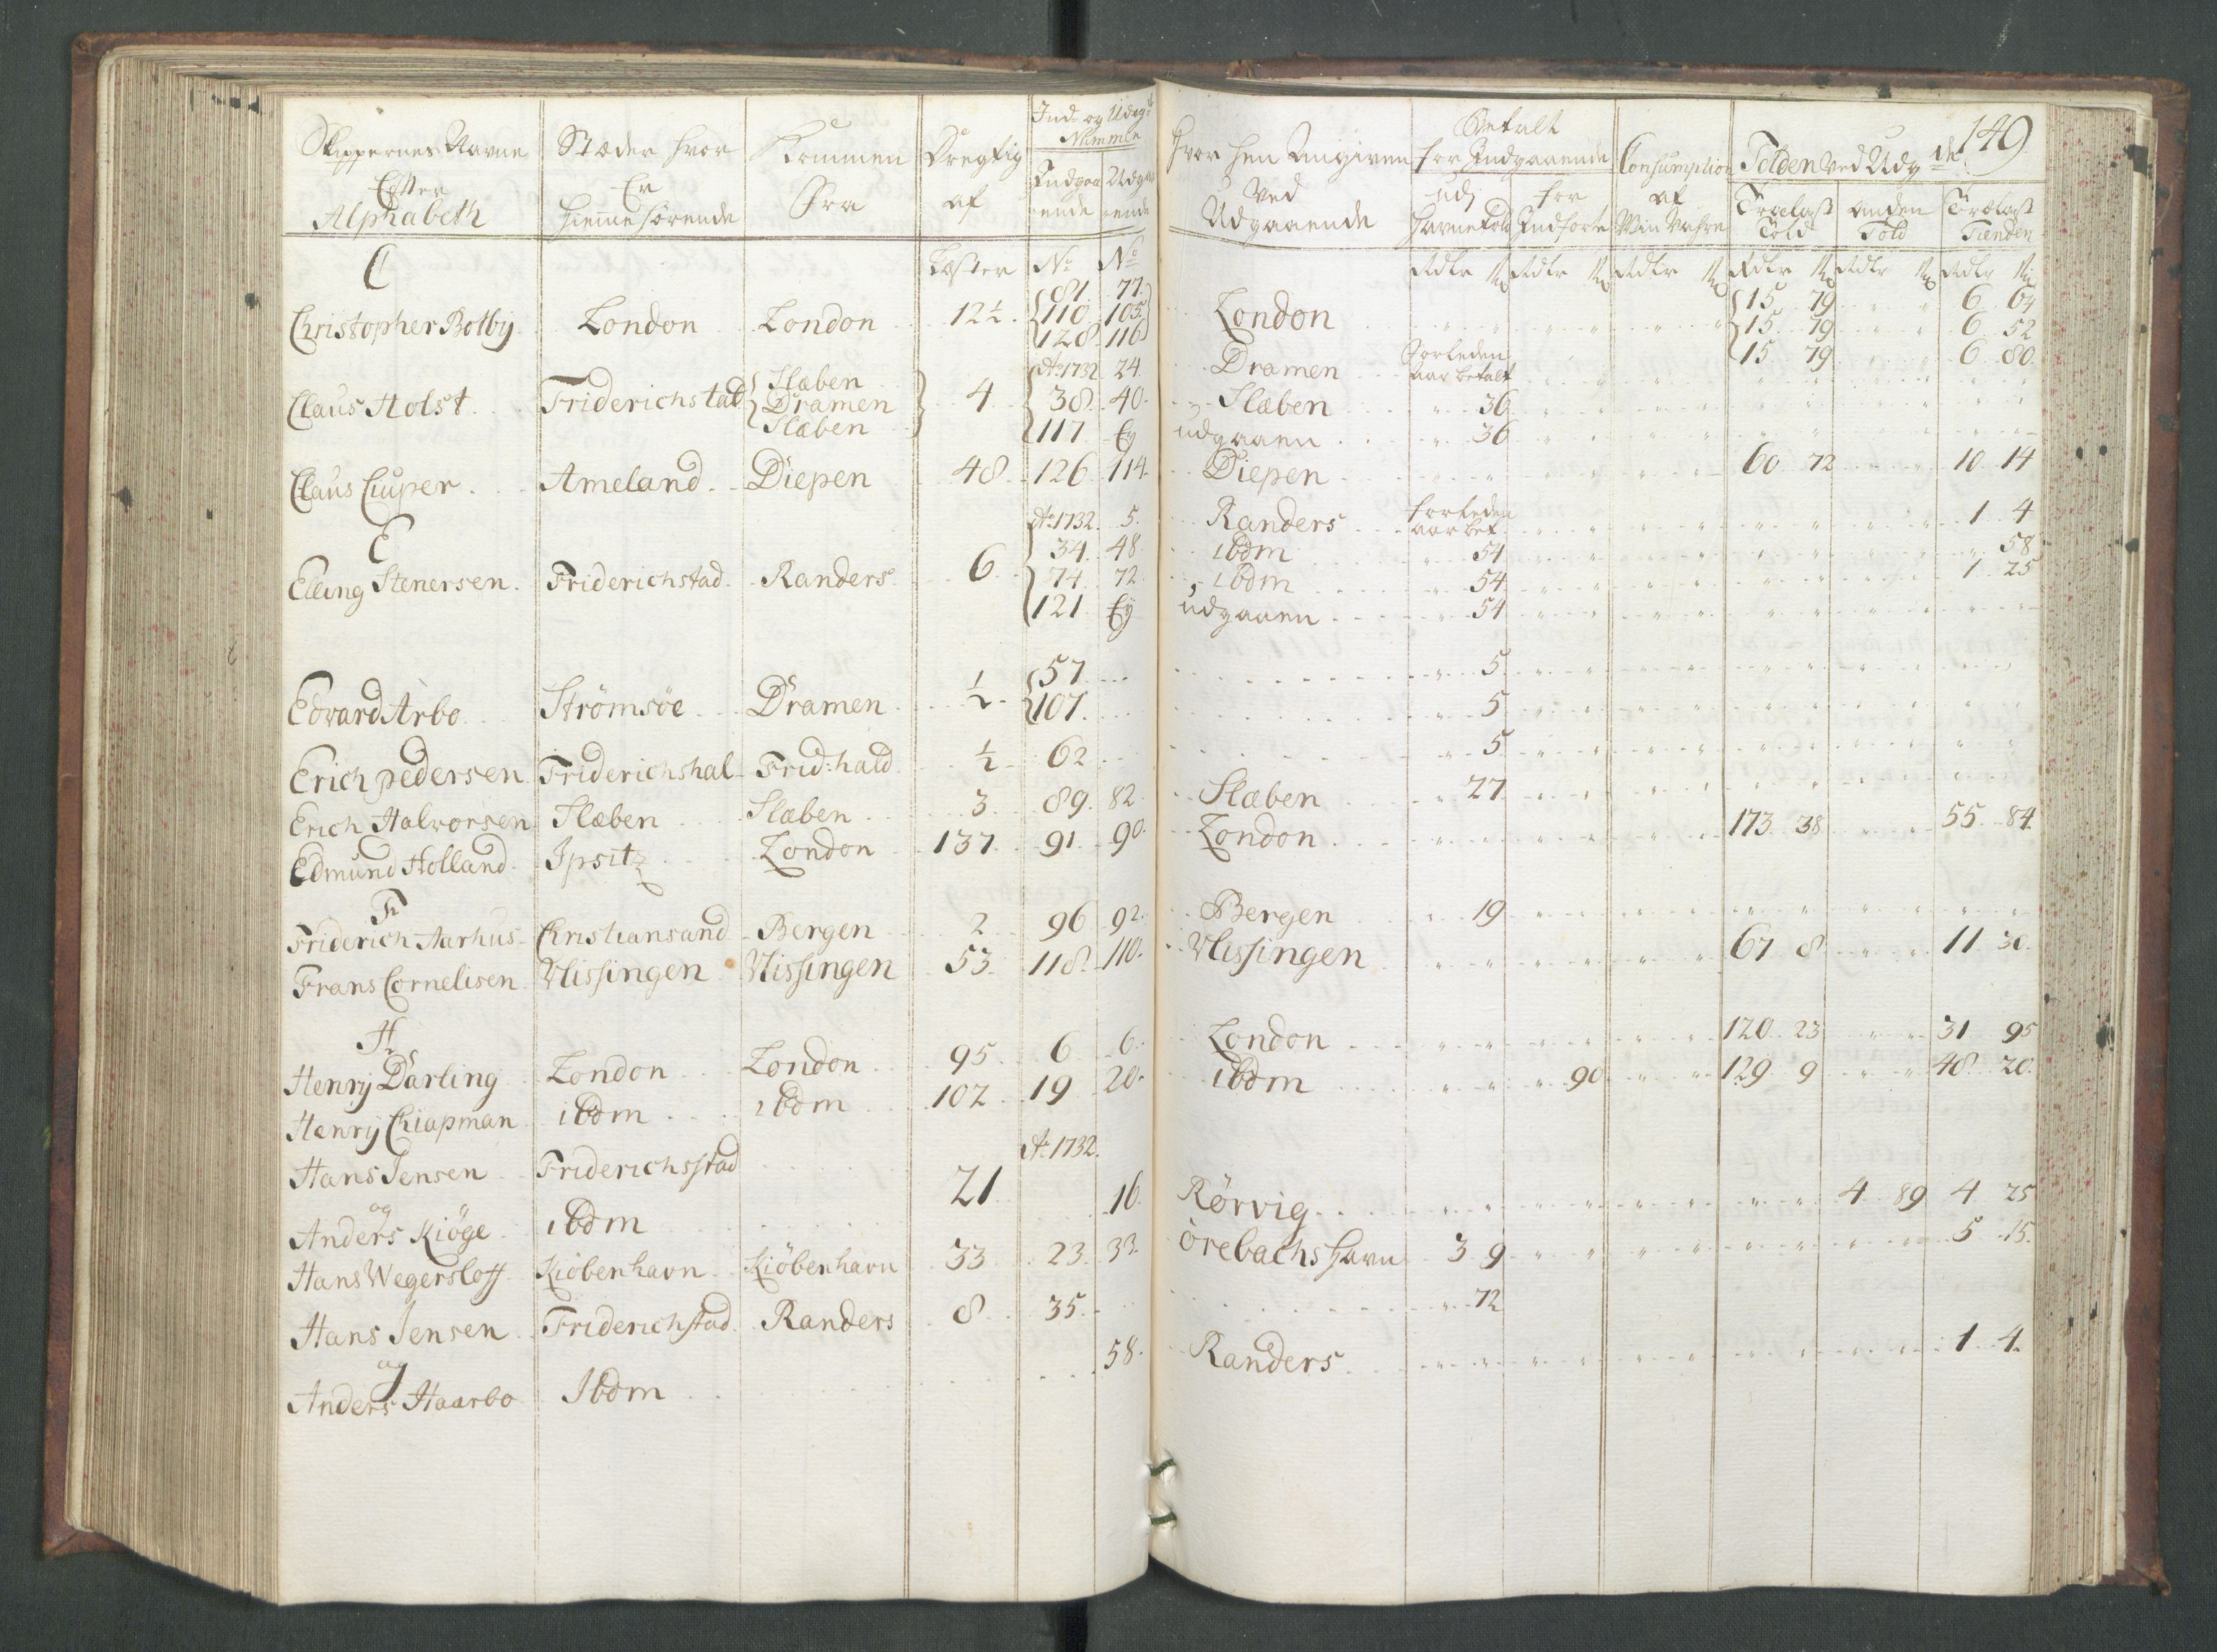 149
Skippernes Navne Efter Alphabeth | Stæder hvor Er Hiemme hörende | Kommen Fra | Dregtig af | Ind og Udg: Nummer | Indgaaende | Udgaaende | Hvor hen Angiven Ved Udgaaende | Betalt for Indgaaende | udj Havnetold | for Indförte | Consumption af | Tolden ved Udg: | Trælast Told | anden Told | Trælast Tienden
C
Læster | No | No | Rdlr | Rdlr | Rdlr | Rdlr | Rdlr | Rdlr
81. 77. 15 79 6 64
Christopher Bolby London London 12½ 110 105 London 15 79 6 52
128 116 15 79 6 80
Ao 1732 24 Dramen Forleden Aar betalt
Claus Holst Friderichstad Slæben Dramen Slæben 4 38 40 Slæben 36
117 Ey udgaaen 36
Claus Cuper Ameland Diepen 48 126 114 Diepen 60 72 10 14
E
Ao 1732 5 Randers forleden aar bet 1 4
34 48 ibdm 54 58
Elling Stenersen Friderichstad Randers 6 74 72 ibdm 54 1 25
121 Ey udgaaen 54
57 5
Edvard Arbo Strömsöe Dramen ½ 107 5
Erich pedersen Friderichshal Frid:hald ½ 62 5
Erich Halvorsen Slæben Slæben 3 89 82 Slæben 27
Edmund Holland Ipsitz London 137 91 90 London 173 38 55 84
F
Friderich Aarhus Christiansand Bergen 2 96 92 Bergen 19
Frans Cornelisen Vlissingen Vlissingen 53 118 110 Vlissingen 67 8 11 30
H
Henry Darling London London 95 6 6 London 120 23 31 95
Henry Chiapman ibdm ibdm 102 19 20 ibdm 90 129 9 48 20
Ao 1732
Hans Jensen Friderichsstad
og 21 16 Rörvig 4 89 4 25
Anders Kiöge ibdm
Hans Wegersloff Kiöbenhavn Kiöbenhavn 33 23 33 örebachs Havn 3 9 5 15
Hans Jensen Friderichstad Randers 8 35 72
og 58 Randers 1 4
Anders Haarbo Ibdm